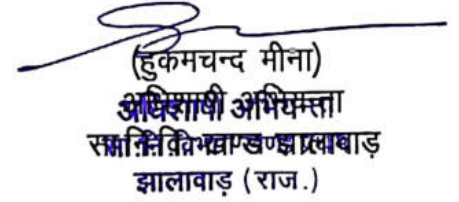 (हुकमचन्द मीना)
अधिशाषी अभियन्ता
सा.नि.वि. खण्ड झालावाड़
झालावाड़ (राज.)